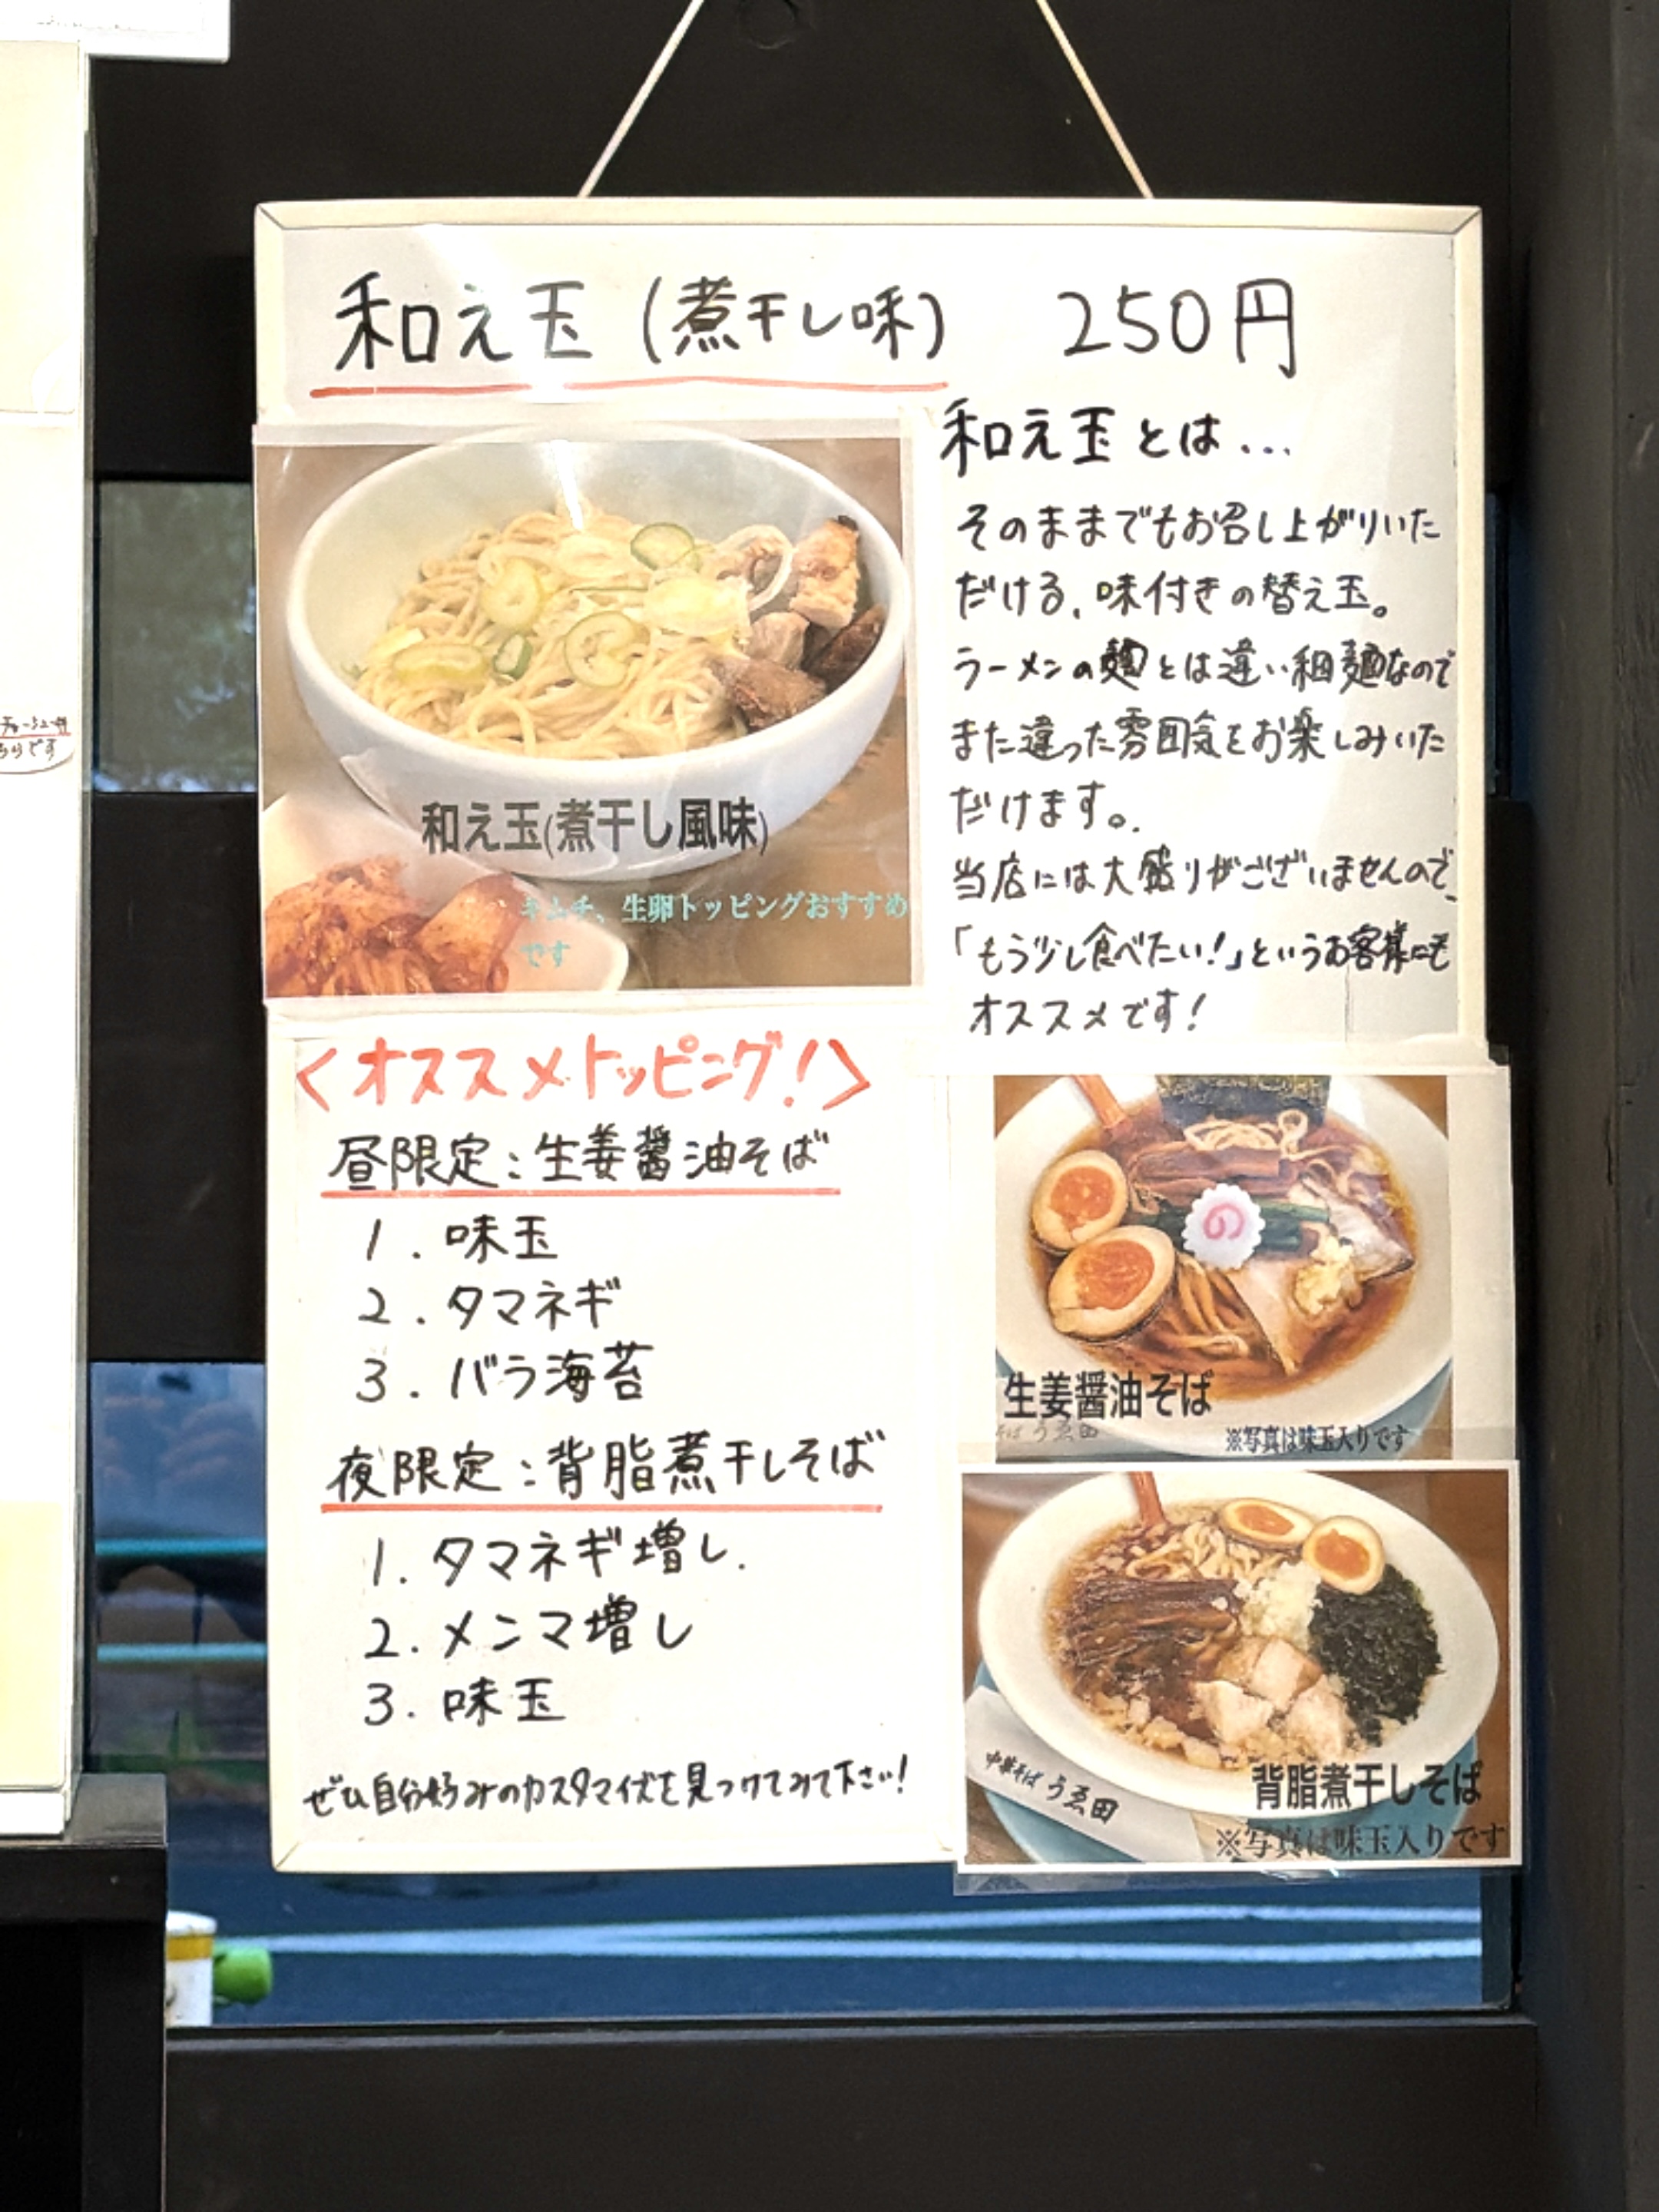 和え玉(煮干し味) 250円
和え玉(煮干し風味)
キムチ、生卵トッピングおすすめ
です
和え玉とは...
そのままでもお召し上がりいた
だける、味付きの替え玉。
ラーメンの麺とは違い細麺なので
また違った雰囲気をお楽しみいた
だけます。
当店には大盛りがございませんので、
「もう少し食べたい!」というお客様にも
オススメです!
<オススメトッピング!>
昼限定:生姜醤油そば
1.味玉
2.タマネギ
3.バラ海苔
夜限定:背脂煮干しそば
1.タマネギ増し.
2.メンマ増し
3.味玉
ぜひ自分好みのカスタマイズを見つけてみて下さい!
生姜醤油そば
そば うゑ田
※写真は味玉入りです
中華そば うゑ田
背脂煮干しそば
※写真は味玉入りです